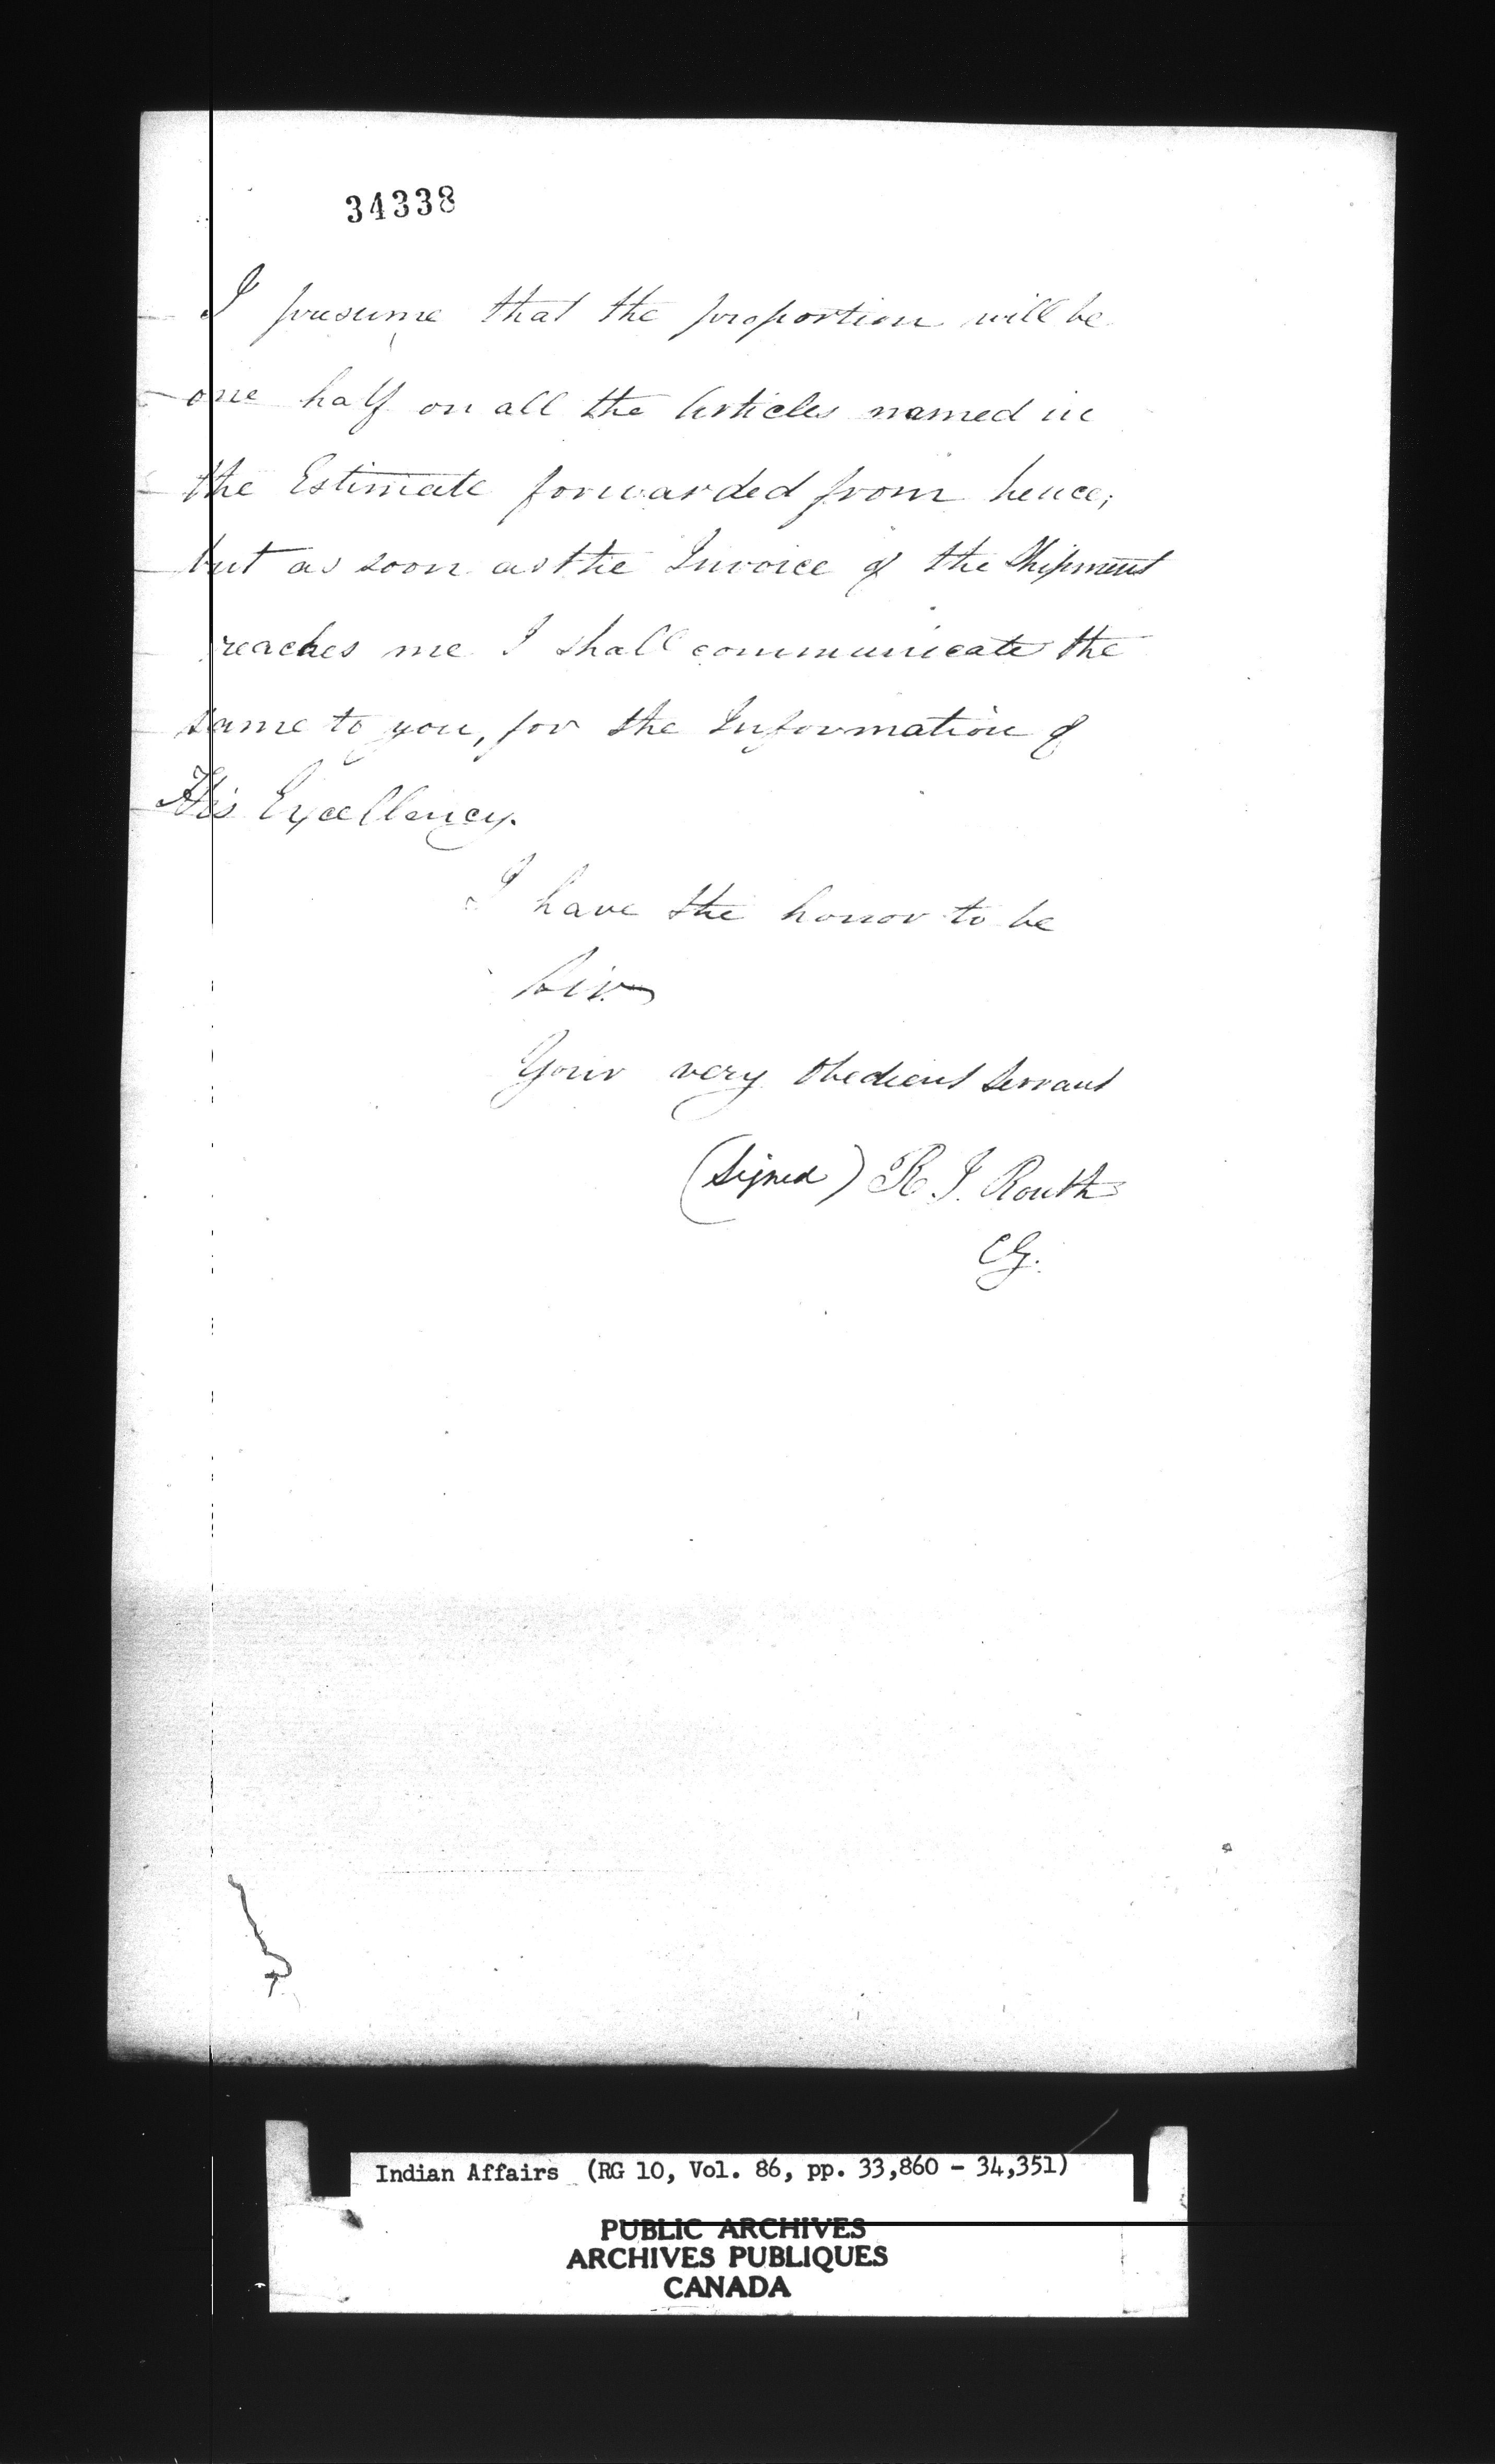 34338
I presume that the proportion will be
one half on all the Articles named in
the Estimate forwarded from hence;
but as soon as the Invoice of the Shipment
reaches me I shall communicate the
same to you, for the Information of
His Excellency.
I have the honor to be
Sir
Your very Obedient Servant
(Signed) R. I. Routh
CG.
Indian Affairs (RG 10, Vol. 86, pp. 33,860 - 34,351)
PUBLIC ARCHIVES
ARCHIVES PUBLIQUES
CANADA